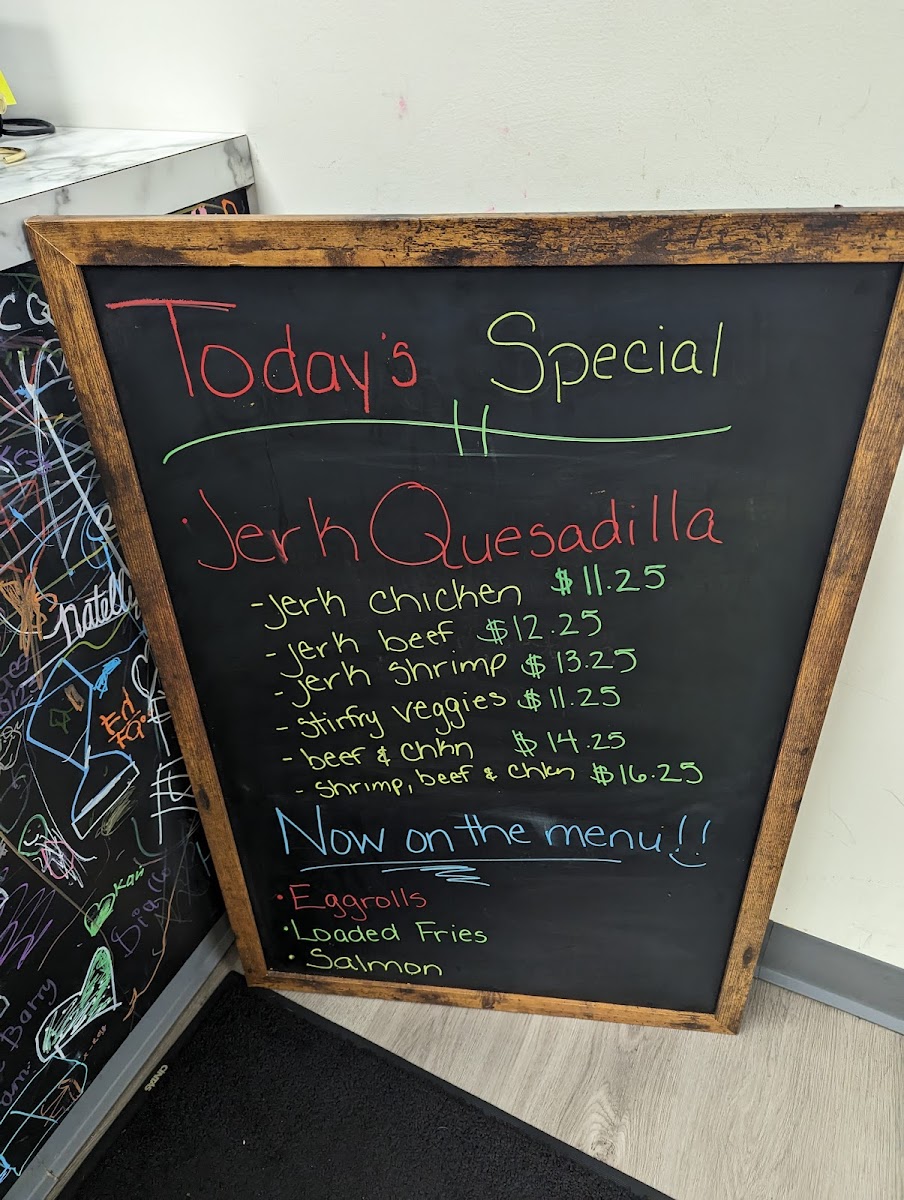 Today's Special
• Jerk Quesadilla
- jerk chicken $11.25
- jerk beef $12.25
- jerk shrimp $13.25
- stirfry veggies $11.25
- beef & chkn $14.25
- shrimp, beef & chkn $16.25
Now on the menu!!
• Eggrolls
• Loaded Fries
• Salmon
Natelly
Kaii
Diallo
Barry
CINTAS